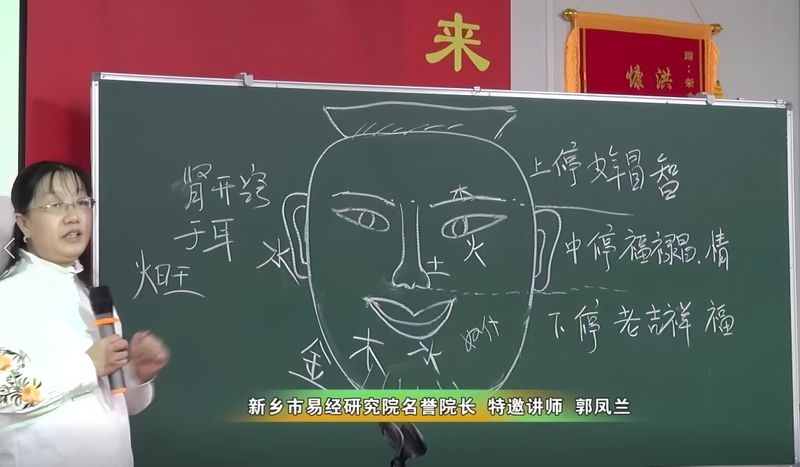 来
赠：新
慷洪
肾开窍
于耳
水
火旺
木
火
土
金
木
水
上停 少年冒智
中停福禄昌.情
下停 老吉祥 福
新乡市易经研究院名誉院长 特邀讲师 郭凤兰